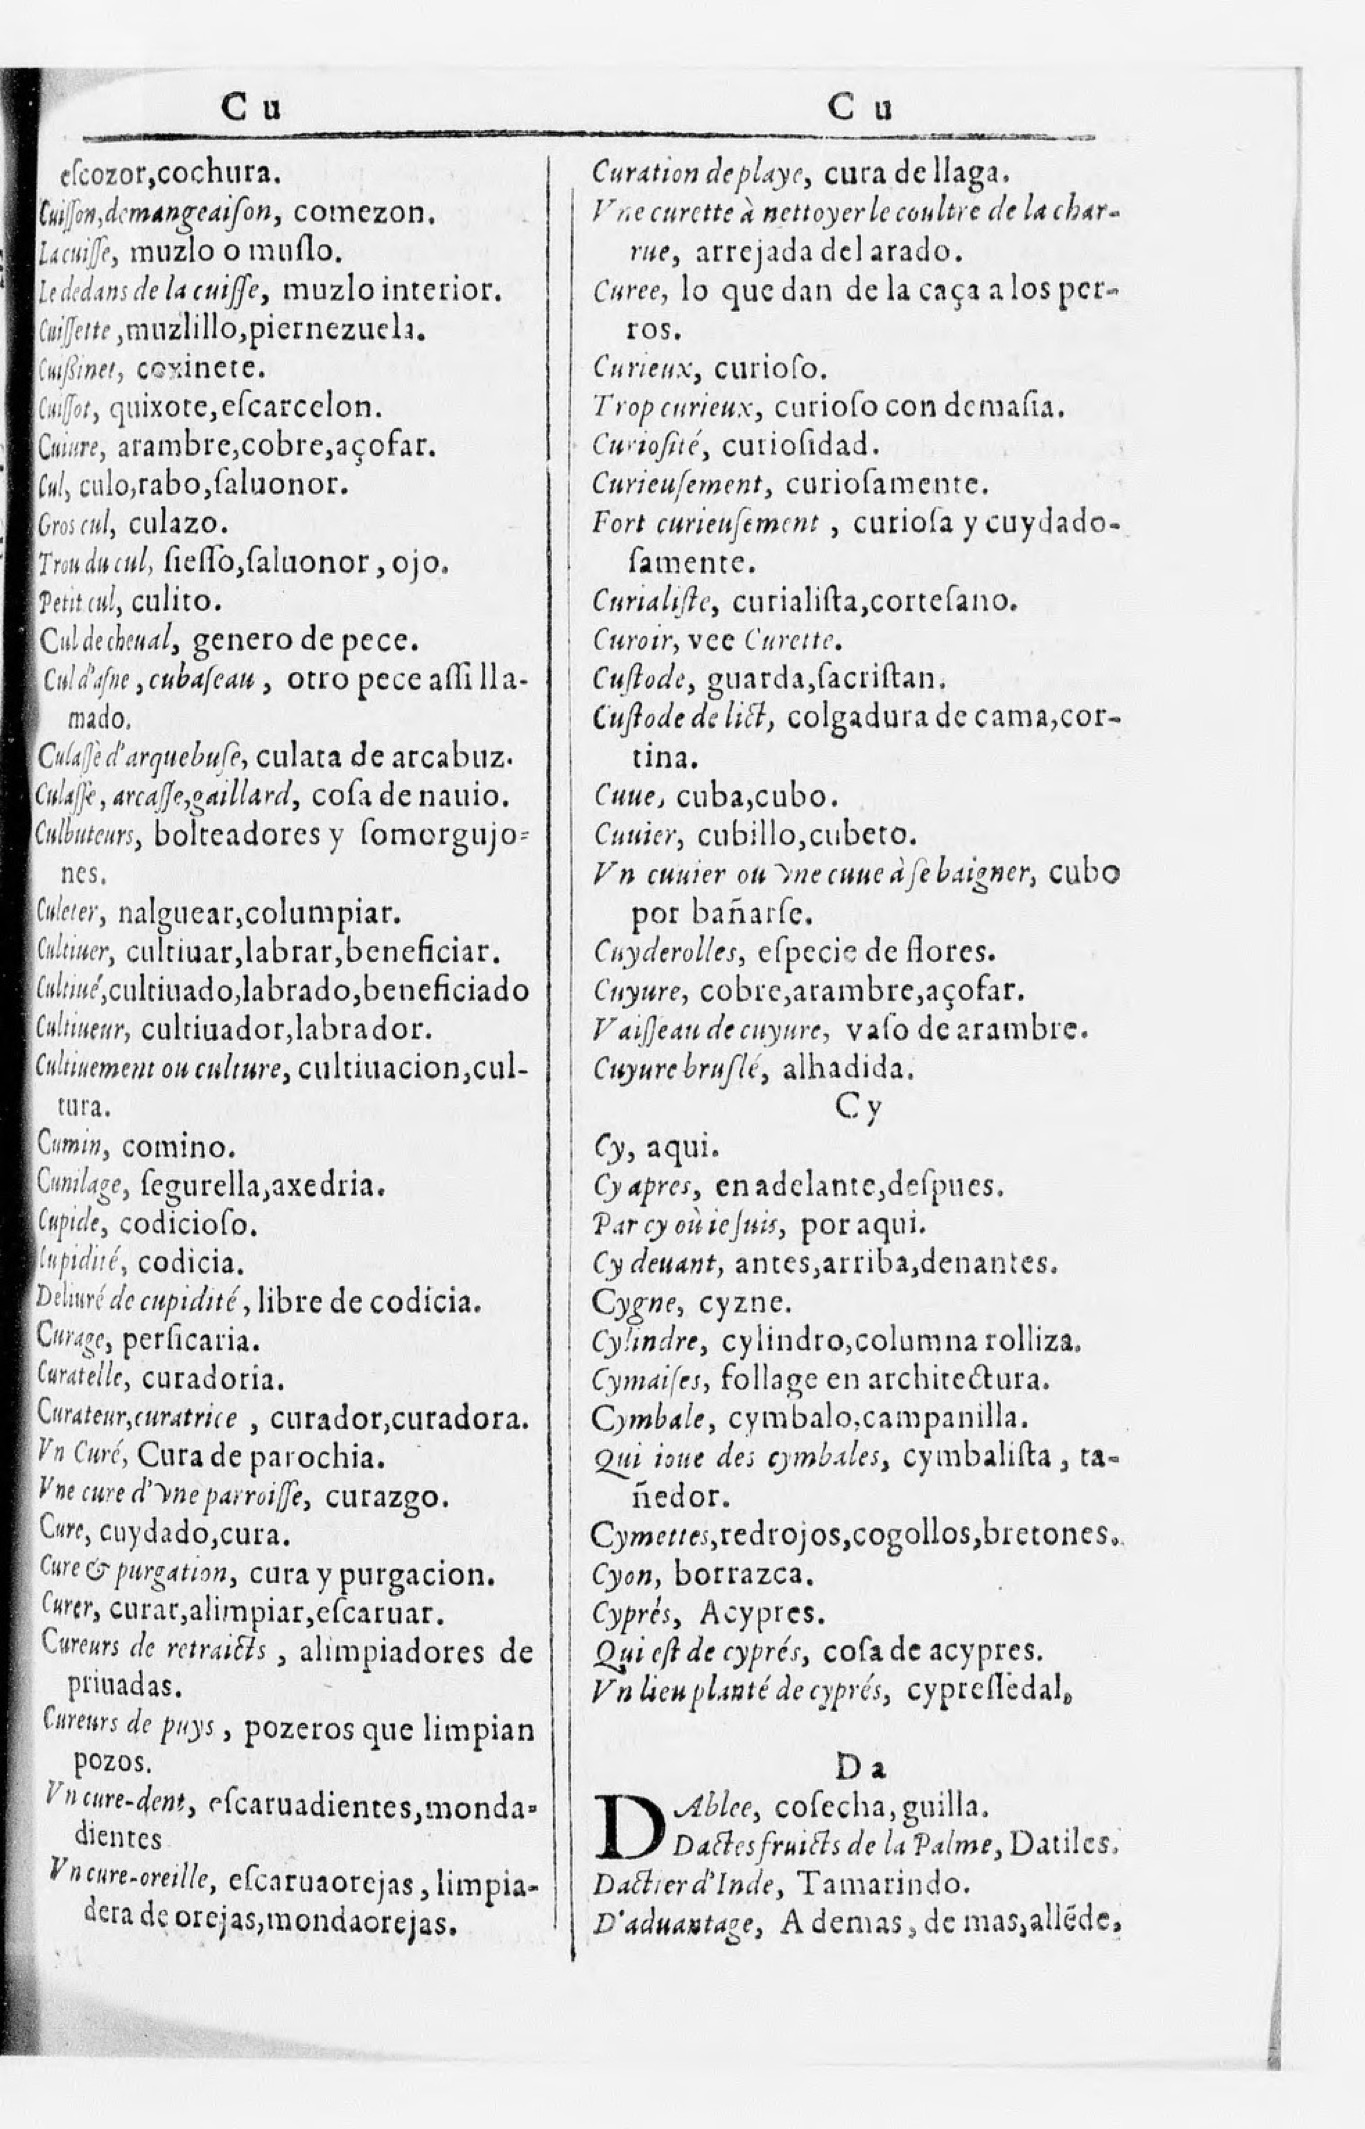 Cu Cu
eſcozor,cochura.
Cuiſſon,demangeaiſon, comezon.
La cuiſſe, muzlo o muſlo.
Le dedans de la cuiſſe, muzlo interior.
Cuiſſette ,muzlillo,piernezuela.
Cuiſsinet, coxinete.
Cuiſſot, quixote,eſcarcelon.
Cuiure, arambre,cobre,açofar.
Cul, culo,rabo,ſaluonor.
Gros cul, culazo.
Trou du cul, ſieſſo,ſaluonor , ojo.
Petit cul, culito.
Cul de cheual, genero de pece.
Cul d'aſne , cubaſeau , otro pece aſſi lla-
mado.
Culaſſe d'arquebuſe, culata de arcabuz.
Culaſſe , arcaſſe,gaillard, coſa de nauio.
Culbuteurs, bolteadores y ſomorgujo-
nes.
Culeter, nalguear,columpiar.
Cultiuer, cultiuar,labrar,beneficiar.
Cultiué,cultiuado,labrado,beneficiado
Cultiueur, cultiuador,labrador.
Cultiuement ou culture, cultiuacion,cul-
tura.
Cumin, comino.
Cunilage, ſegurella,axedria.
Cupide, codicioſo.
Cupidité, codicia.
Deliuré de cupidité, libre de codicia.
Curage, perſicaria.
Curatelle, curadoria.
Curateur,curatrice , curador,curadora.
Vn Curé, Cura de parochia.
Vne cure d'vne parroiſſe, curazgo.
Cure, cuydado,cura.
Cure & purgation, cura y purgacion.
Curer, curar,alimpiar,eſcaruar.
Cureurs de retraicts , alimpiadores de
priuadas.
Cureurs de puys , pozeros que limpian
pozos.
Vn cure-dent, eſcaruadientes,monda-
dientes
Vn cure-oreille, eſcaruaorejas, limpia-
dera de orejas,mondaorejas.
Curation de playe, cura de llaga.
Vne curette à nettoyer le coultre de la char-
rue, arrejada del arado.
Curee, lo que dan de la caça a los per-
ros.
Curieux, curioſo.
Trop curieux, curioſo con demaſia.
Curioſité, curioſidad.
Curieuſement, curioſamente.
Fort curieuſement , curioſa y cuydado-
ſamente.
Curialiſte, curialiſta,corteſano.
Curoir, vee Curette.
Cuſtode, guarda,ſacriſtan.
Cuſtode de lict, colgadura de cama,cor-
tina.
Cuue, cuba,cubo.
Cuuier, cubillo,cubeto.
Vn cuuier ou vne cuue à ſe baigner, cubo
por bañarſe.
Cuyderolles, eſpecie de flores.
Cuyure, cobre,arambre,açofar.
Vaiſſeau de cuyure, vaſo de arambre.
Cuyure bruſlé, alhadida.
Cy
Cy, aqui.
Cy apres, en adelante,deſpues.
Par cy où ie ſuis, por aqui.
Cy deuant, antes,arriba,denantes.
Cygne, cyzne.
Cylindre, cylindro,columna rolliza.
Cymaiſes, follage en architectura.
Cymbale, cymbalo,campanilla.
Qui ioue des cymbales, cymbaliſta , ta-
ñedor.
Cymettes,redrojos,cogollos,bretones.
Cyon, borrazca.
Cyprés, Acypres.
Qui eſt de cyprés, coſa de acypres.
Vn lieu planté de cyprés, cypreſſedal.
Da
DAblee, coſecha, guilla.
Dactes fruicts de la Palme, Datiles.
Dactier d'Inde, Tamarindo.
D'aduantage, A demas, de mas,allẽde,